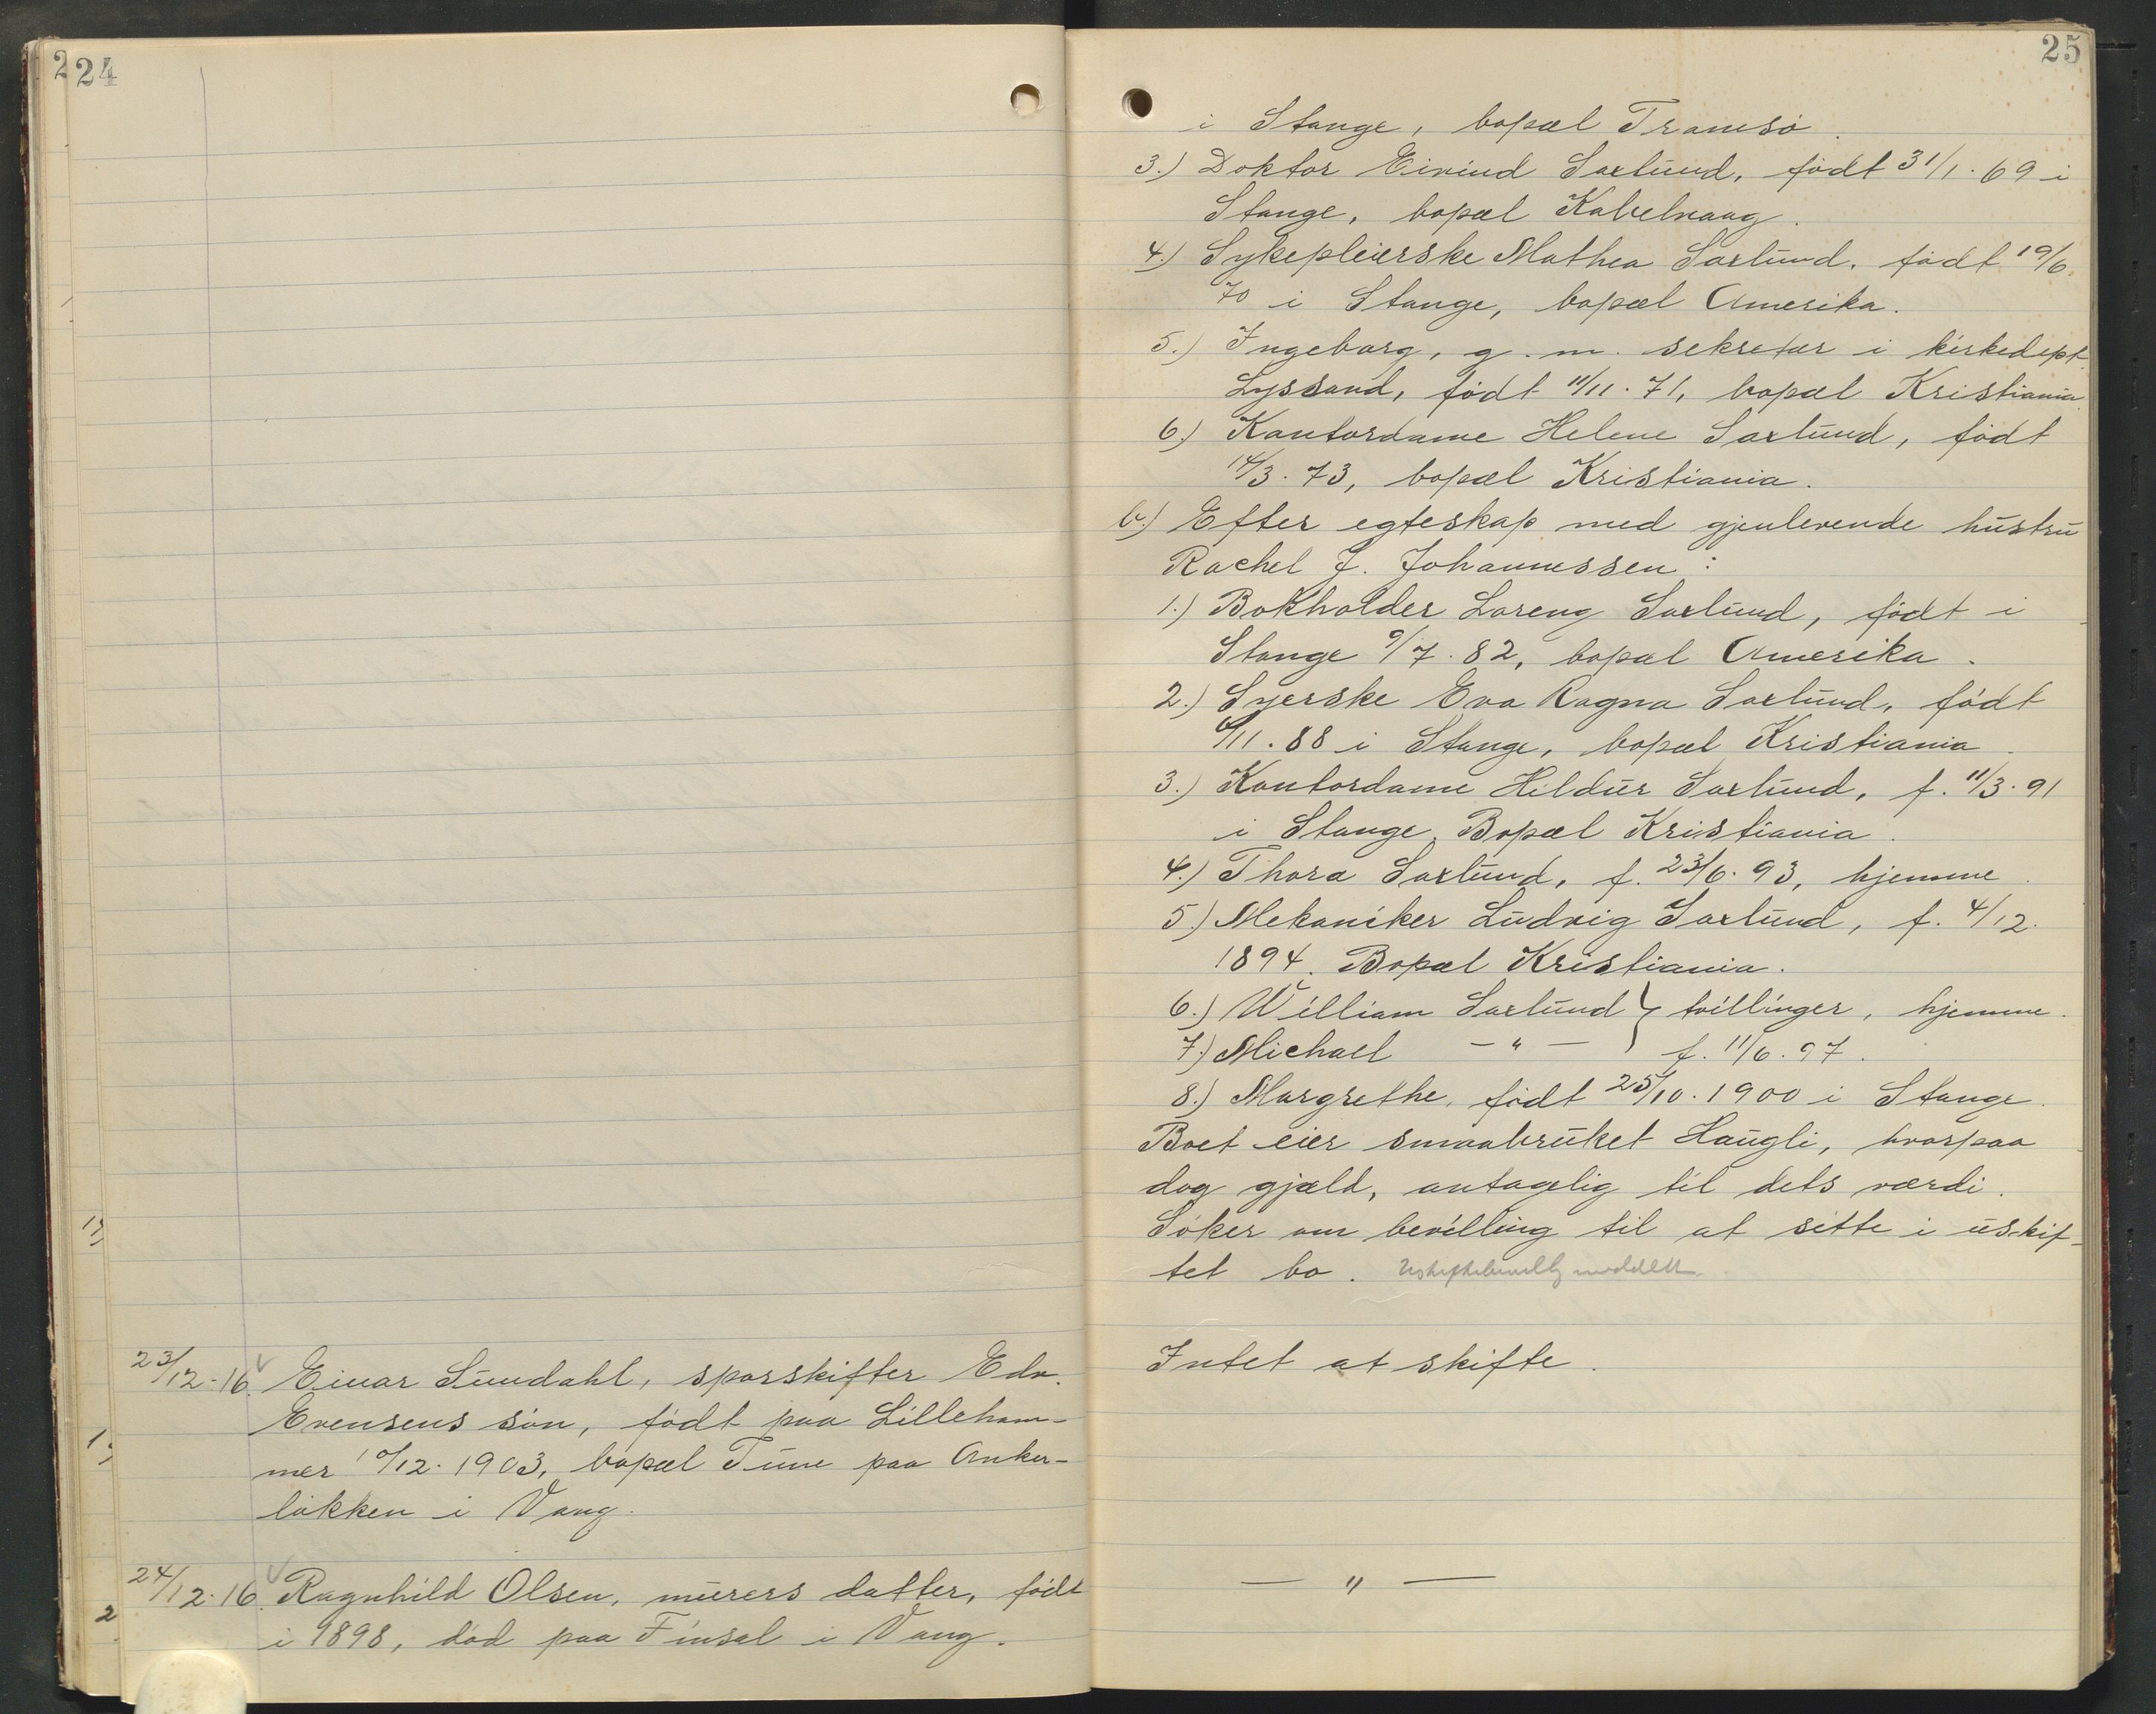 24
23/12-16. Einar Sundahl, sporskifter Edv.
Evensens søn, født paa Lilleham-
mer 10/12. 1903, bopæl Tune paa Anker-
løkken i Vang.
24/12-16. Ragnhild Olsen, murers datter, født
i 1898, død paa Finsal i Vang.
25
i Stange, bopæl Tromsø.
3.) Doktor Eivind Saxlund, født 31/1. 69 i
Stange, bopæl Kabelvaag.
4.) Sykepleierske Mathea Saxlund, født 19/6
70 i Stange, bopæl Amerika.
5.) Ingeborg, g. m. sekretær i kirkedept.
Lyssand, født 11/11. 71, bopæl Kristiania.
6.) Kontordame Helene Saxlund, født
14/3. 73, bopæl Kristiania.
b.) Efter egteskap med gjenlevende hustru
Rachel J. Johannessen:
1.) Bokholder Loreng Saxlund, født i
Stange 9/7. 82, bopæl Amerika.
2.) Syerske Eva Ragna Saxlund, født
/11. 88 i Stange, bopæl Kristiania.
3.) Kontordame Hildur Saxlund, f. 11/3. 91
i Stange. Bopæl Kristiania.
4.) Thora Saxlund, f. 23/6. 93, hjemme.
5.) Mekaniker Ludvig Saxlund, f. 4/12.
1894. Bopæl Kristiania.
6.) William Saxlund } tvillinger, hjemme.
7.) Michael — " — } f. 11/6. 97.
8.) Margrethe, født 25/10. 1900 i Stange.
Boet eier smaabruket Haugli, hvorpaa
dog gjæld, antagelig til dets værdi.
Søker om bevilling til at sitte i uskif-
tet bo. Uskiftebevillg meddelt.
Intet at skifte.
— " —